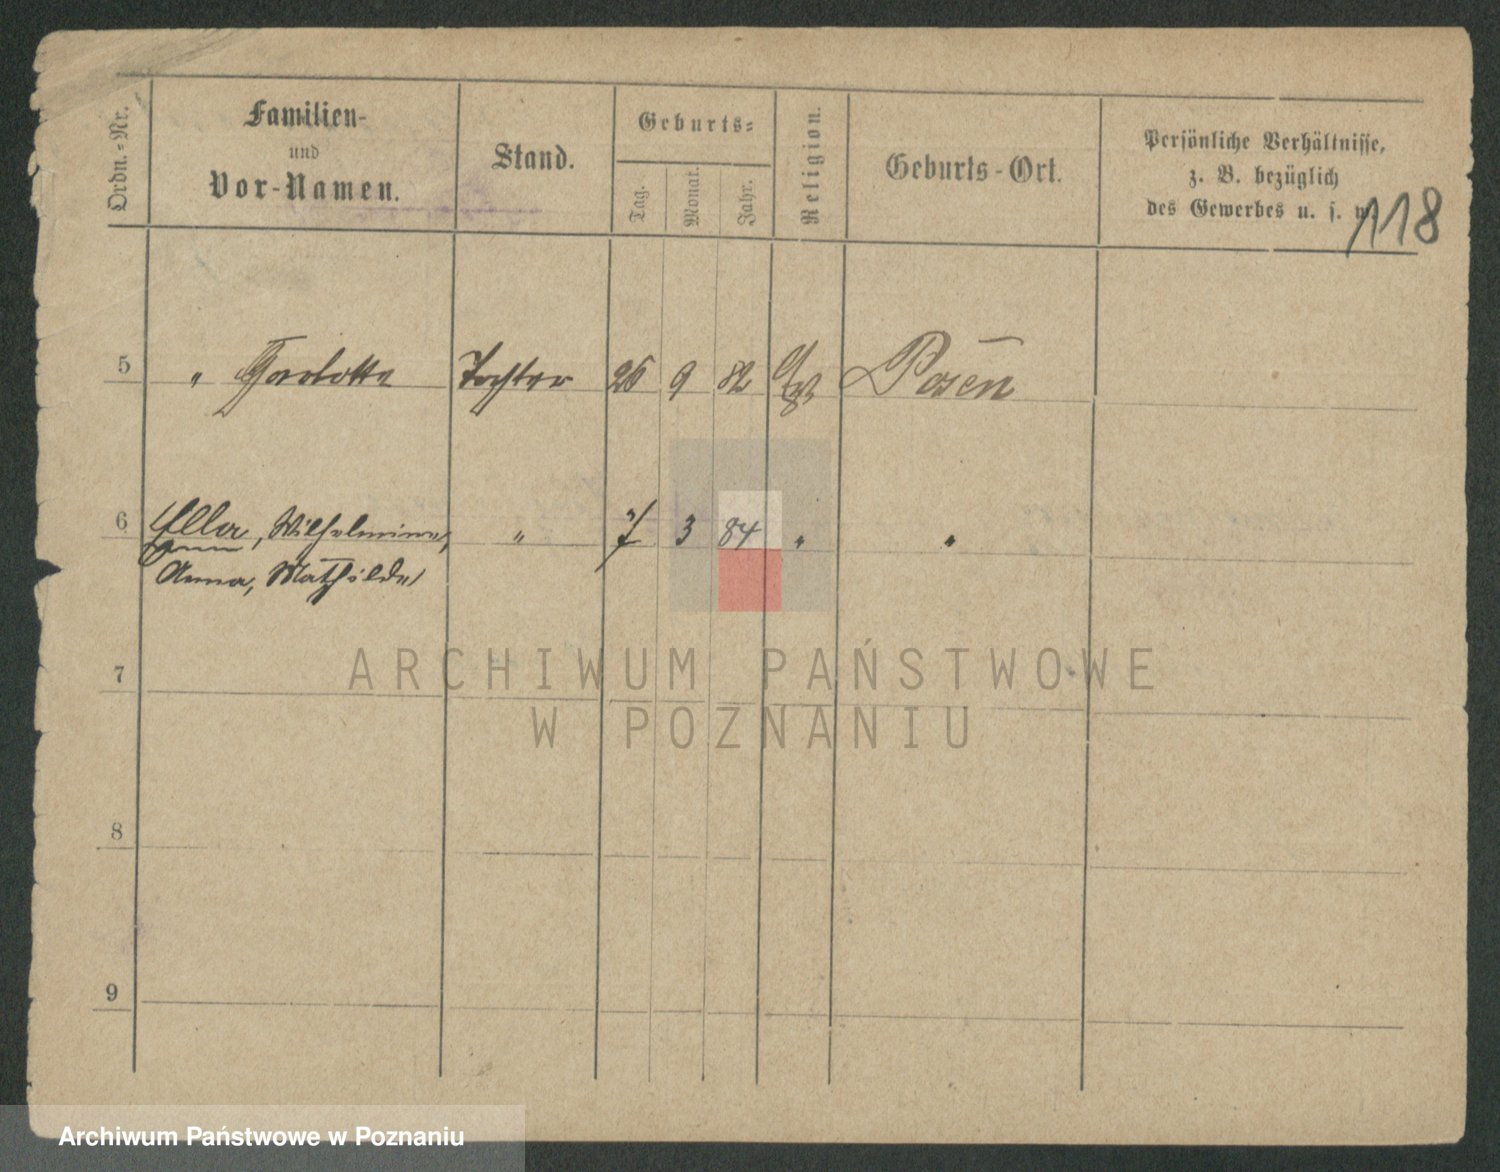 Ordn.-Nr.
Familien-
und
Vor-Namen.
Stand.
Geburts-
Tag.
Monat.
Jahr.
Religion.
Geburts-Ort.
Persönliche Verhältnisse,
z. B. bezüglich
des Gewerbes u. s. w.
118
5 " Tochter 26 9 82 Posen
6 Ella, Wilhelmine, " 7 3 84 " "
Anna, Mathilde
7
ARCHIWUM PAŃSTWOWE
W POZNANIU
8
9
Archiwum Państwowe w Poznaniu